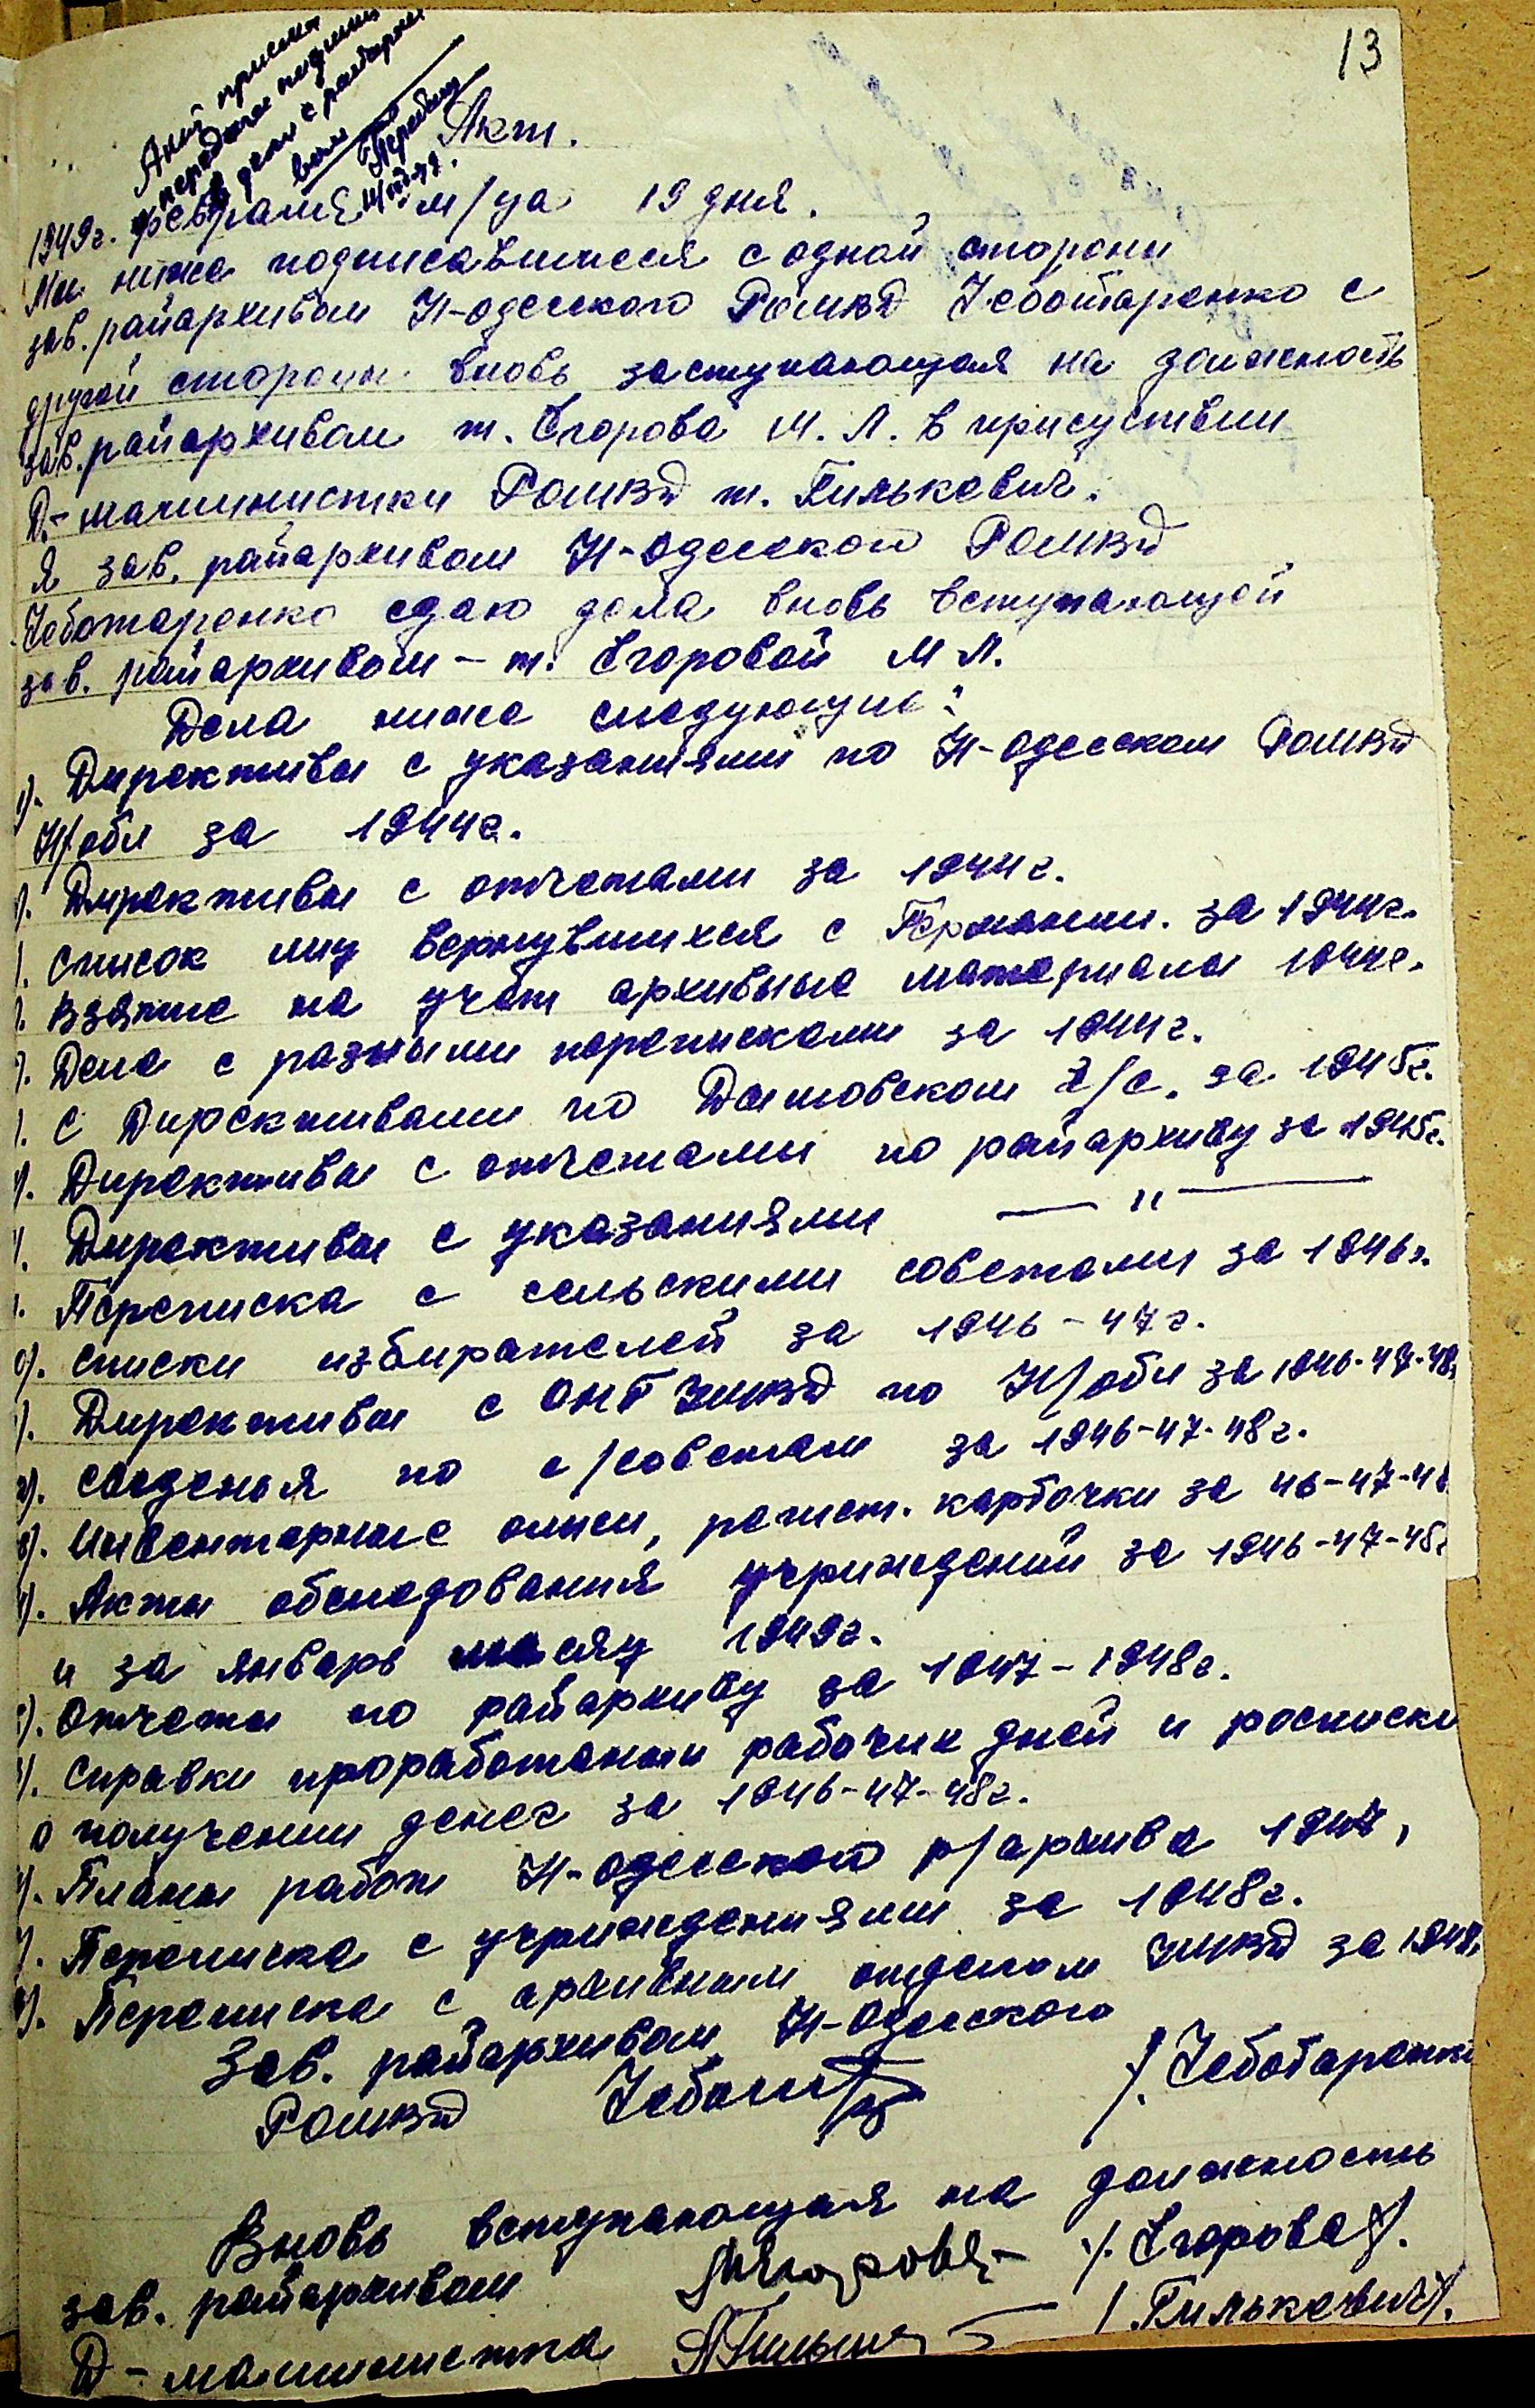 13
Акт приема
передачи
дел с райархи
вом
Акт.
1949г. февраля м/ца 19 дня.
Мы ниже подписавшиеся с одной стороны
зав. райархивом Н-Одесского РОМВД Чеботаренко с
другой стороны вновь заступающая на должность
зав. райархивом т. Егорова М. Л. в присуствии
Д.-машинистки РОМВД т. Гилькевич.
Я зав. райархивом Н-Одесского РОМВД
Чеботаренко сдаю дела вновь вступающей
зав. райархивом - т. Егоровой М Л.
Дела ниже следующие:
1). Директивы с указаниями по Н-Одесском РОМВД
Н/обл за 1944г.
). Директивы с отчетами за 1944г.
). Список лиц вернувшихся с Германии. за 1944г.
). Взятые на учет архивные материалы 1944г.
). Дела с разными переписками за 1944г.
). С Директивами по с/с. за 1945г.
). Директивы с отчетами по райархиву за 1945г.
). Директивы с указаниями — " —
). Переписка с сельскими советами за 1946г.
0). Списки избирателей за 1946-47г.
). Директивы с УМВД по Н/обл за 1946-47-48г
2). Сведенья по с/советам за 1946-47-48г.
3). Инвентарные описи, регист. карточки за 46-47-48
). Акты обследования учриждений за 1946-47-48г
и за январь месяц 1949г.
). Отчеты по райархиву за 1947-1948г.
). Справки проработаныи рабочих дней и росписки
о получении денег за 1946-47-48г.
). Планы работ Н-Одесского р/архива 1947,
). Переписка с учриждениями за 1948г.
). Переписка с архивным отделом УМВД за 1948г
Зав. райархивом Н-Одесского
РОМВД /. Чеботаренко
Вновь вступающая на должность
зав. райархивом МЕгорова /. Егорова/.
Д-машинистка /. Гилькевич/.